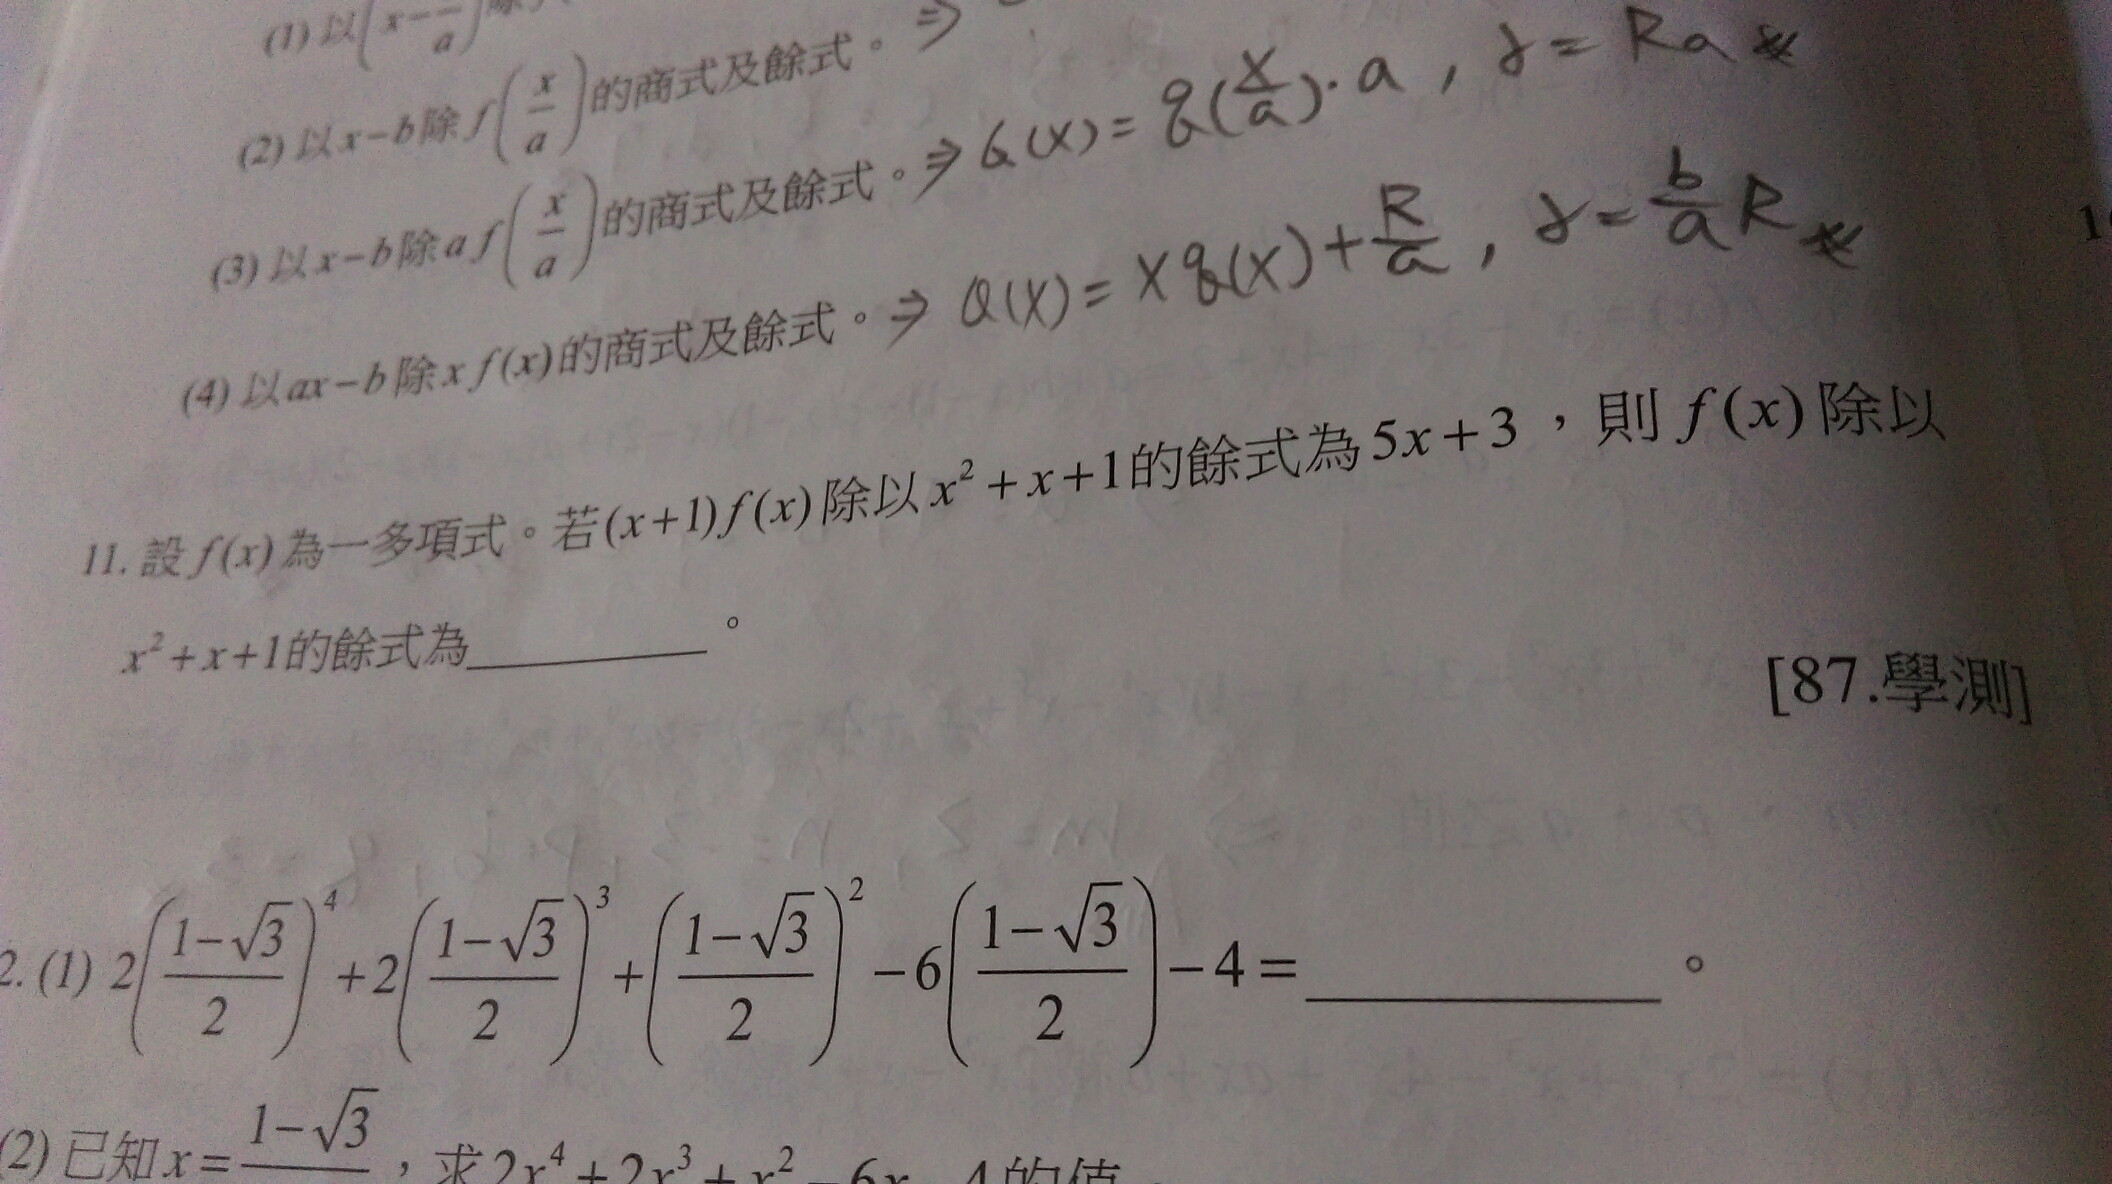 (1) 以(x-—a)
(2) 以 x-b 除 f(x/a) 的商式及餘式。⇒
(3) 以 x-b 除 a f(x/a) 的商式及餘式。⇒ Q(x) = q(x/a)·a , r = Ra
(4) 以 ax-b 除 x f(x) 的商式及餘式。⇒ Q(x) = xq(x) + R/a , r = b/a R
11. 設 f(x) 為一多項式。若 (x+1)f(x) 除以 x²+x+1 的餘式為 5x+3,則 f(x) 除以
x²+x+1 的餘式為________。
[87.學測]
2.(1) 2((1-√3)/2)⁴+2((1-√3)/2)³+((1-√3)/2)²-6((1-√3)/2)-4=________。
(2) 已知 x=(1-√3)/,求 2x⁴+2x³+x²-6x-4 的值